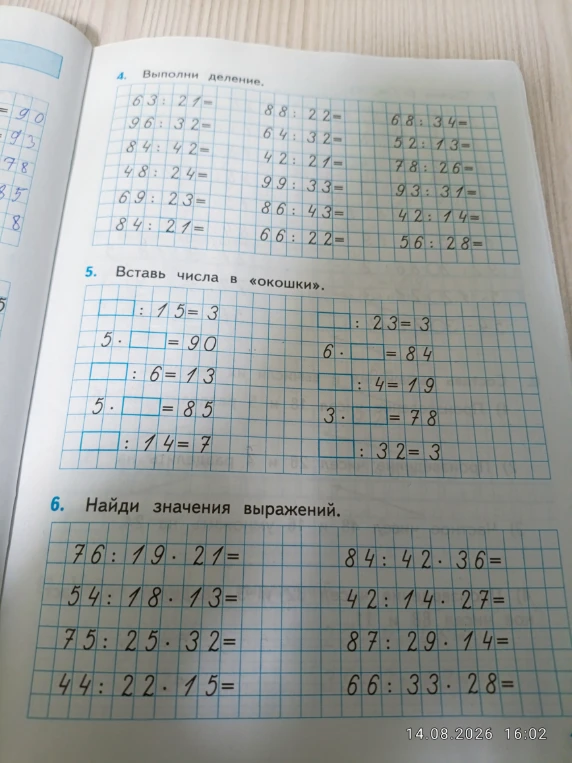 = 90
= 93
78
85
8
5
4. Выполни деление.
63 : 21 =
96 : 32 =
84 : 42 =
48 : 24 =
69 : 23 =
84 : 21 =
88 : 22 =
64 : 32 =
42 : 21 =
99 : 33 =
86 : 43 =
66 : 22 =
68 : 34 =
52 : 13 =
78 : 26 =
93 : 31 =
42 : 14 =
56 : 28 =
5. Вставь числа в «окошки».
: 15 = 3
5 · = 90
: 6 = 13
5 · = 85
: 14 = 7
: 23 = 3
6 · = 84
: 4 = 19
3 · = 78
: 32 = 3
6. Найди значения выражений.
76 : 19 · 21 =
54 : 18 · 13 =
75 : 25 · 32 =
44 : 22 · 15 =
84 : 42 · 36 =
42 : 14 · 27 =
87 : 29 · 14 =
66 : 33 · 28 =
14.08.2026 16:02